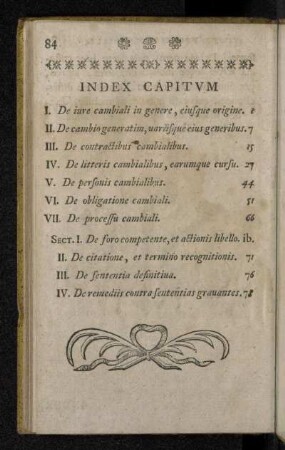 84
INDEX CAPITVM
I. De iure cambiali in genere, eiusque origine.
II. De cambio generatim, uariisque eius generibus. 7
III. De contractibus cambialibus. 15
IV. De litteris cambialibus, earumque cursu. 27
V. De personis cambialibus. 44
VI. De obligatione cambiali. 51
VII. De processu cambiali. 66
SECT. I. De foro competente, et actionis libello. ib.
II. De citatione, et termino recognitionis. 71
III. De sententia definitiua. 76
IV. De remediis contra sententias grauantes. 78